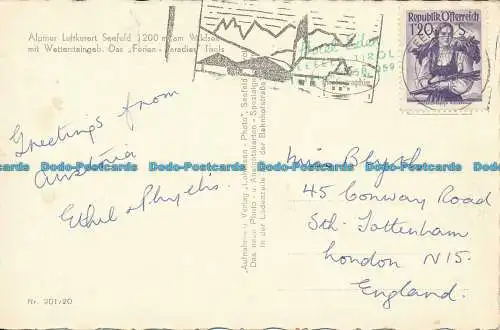 Alpiner Luftkurort Seefeld 1200 m am Wildsee
mit Wettersteingeb. Das „Ferien-Paradies" Tirols
Republik Österreich
1.20
SEEFELD
TIROL
Greetings from
Austria
Ethel & Phyllis.
Miss Blyth
45 Conway Road
Sth. Tottenham
London N15.
England.
Aufnahme u. Verlag - Photo", Seefeld
Das neue Photo - u. Ansichtskarten - Spezial
in der Ladenzeile der Bahnhofstraße
Nr. 201/20
Dodo-Postcards Dodo-Postcards Dodo-Postcards Dodo-Postcards